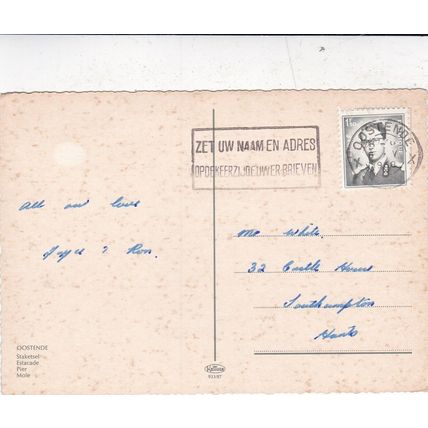 ZET UW NAAM EN ADRES
OP DE KEERZIJDE UWER BRIEVEN
OOSTENDE
All our love
& Ron.
Mr White.
32 Castle House
Southampton
Hants
OOSTENDE
Staketsel
Estacade
Pier
Mole